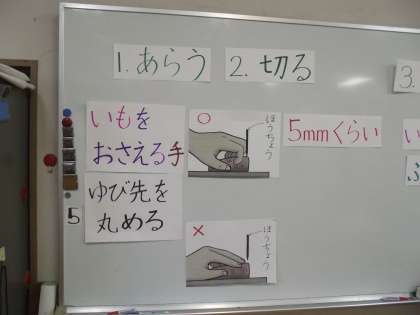 1. あらう
2. 切る
3.
いもを
おさえる手
○
ほうちょう
5mmくらい
い
ふ
ゆび先を
丸める
5
×
ほうちょう